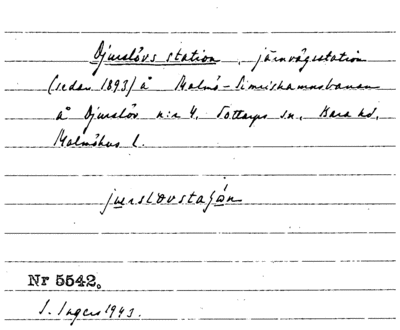 Djurslövs station, järnvägsstation
(sedan 1893) å Malmö-Simrishamnsbanan
å Djurslöv n:r 4, Tottarps sn, Bara hd,
Malmöhus l.
juerslövstaʃån
Nr 5542.
I. Ingers 1943.